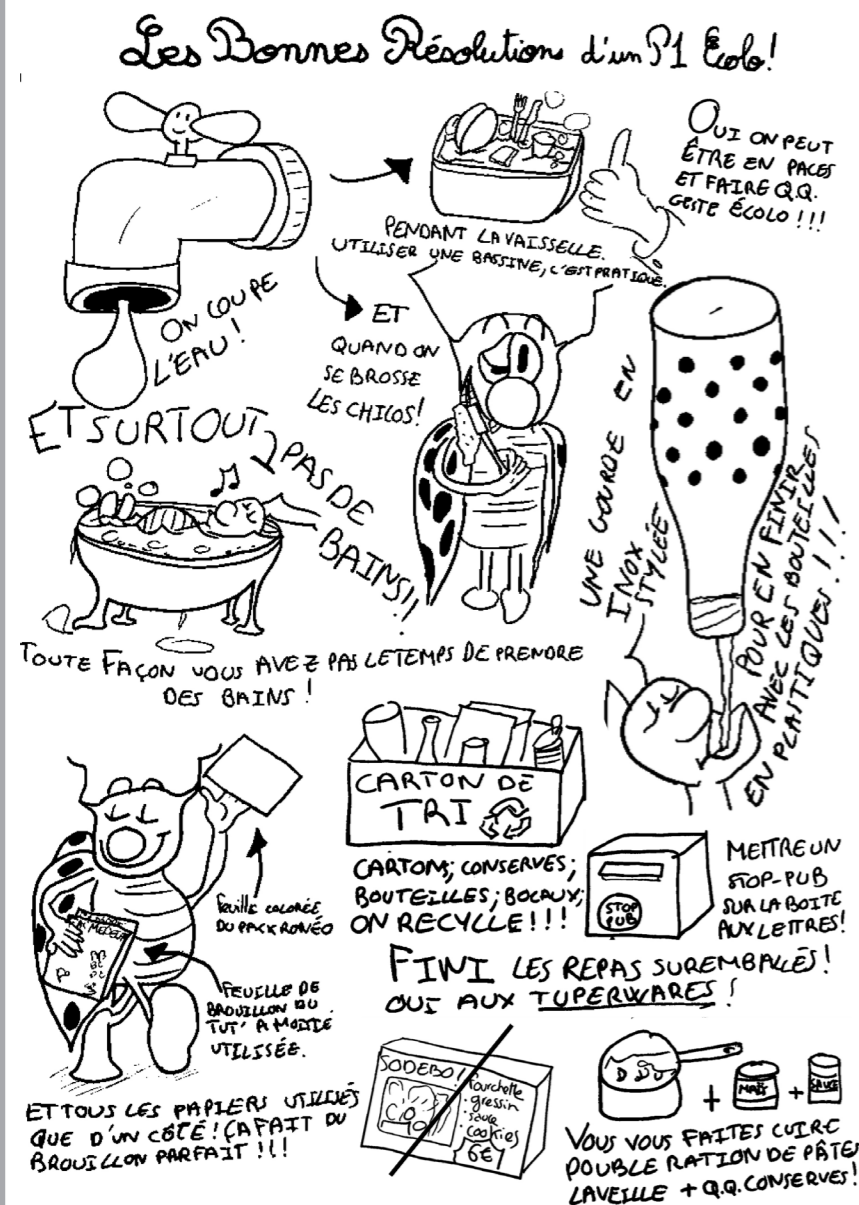 Les Bonnes Résolutions d'un P1 Écolo!
OUI ON PEUT
ÊTRE EN PACES
ET FAIRE Q.Q.
GESTE ÉCOLO!!!
PENDANT LA VAISSELLE.
UTILISER UNE BASSINE, C'EST PRATIQUE.
ON COUPE
L'EAU!
ET
QUAND ON
SE BROSSE
LES CHICOS!
ET SURTOUT
PAS DE
BAINS!!
TOUTE FAÇON VOUS AVEZ PAS LE TEMPS DE PRENDRE
DES BAINS!
UNE GOURDE EN
INOX
STYLÉE
POUR EN FINIR
AVEC LES BOUTEILLES
EN PLASTIQUES!!!
CARTON DE
TRI
CARTONS; CONSERVES;
BOUTEILLES; BOCAUX;
ON RECYCLE!!!
STOP
PUB
METTRE UN
STOP-PUB
SUR LA BOITE
AUX LETTRES!
feuille colorée
DU PACK RONÉO
FEUILLE DE
BROUILLON DU
TUT' A MOITIÉ
UTILISÉE.
ET TOUS LES PAPIERS UTILISÉS
QUE D'UN CÔTÉ! ÇA FAIT DU
BROUILLON PARFAIT!!!
FINI LES REPAS SUREMBALLÉS!
OUI AUX TUPERWARES!
SODEBO!
fourchette
.gressin
.sauce
.cookies
6€!
+ MAÏS + SAUCE
VOUS VOUS FAITES CUIRE
DOUBLE RATION DE PÂTES
LA VEILLE + Q.Q. CONSERVES!